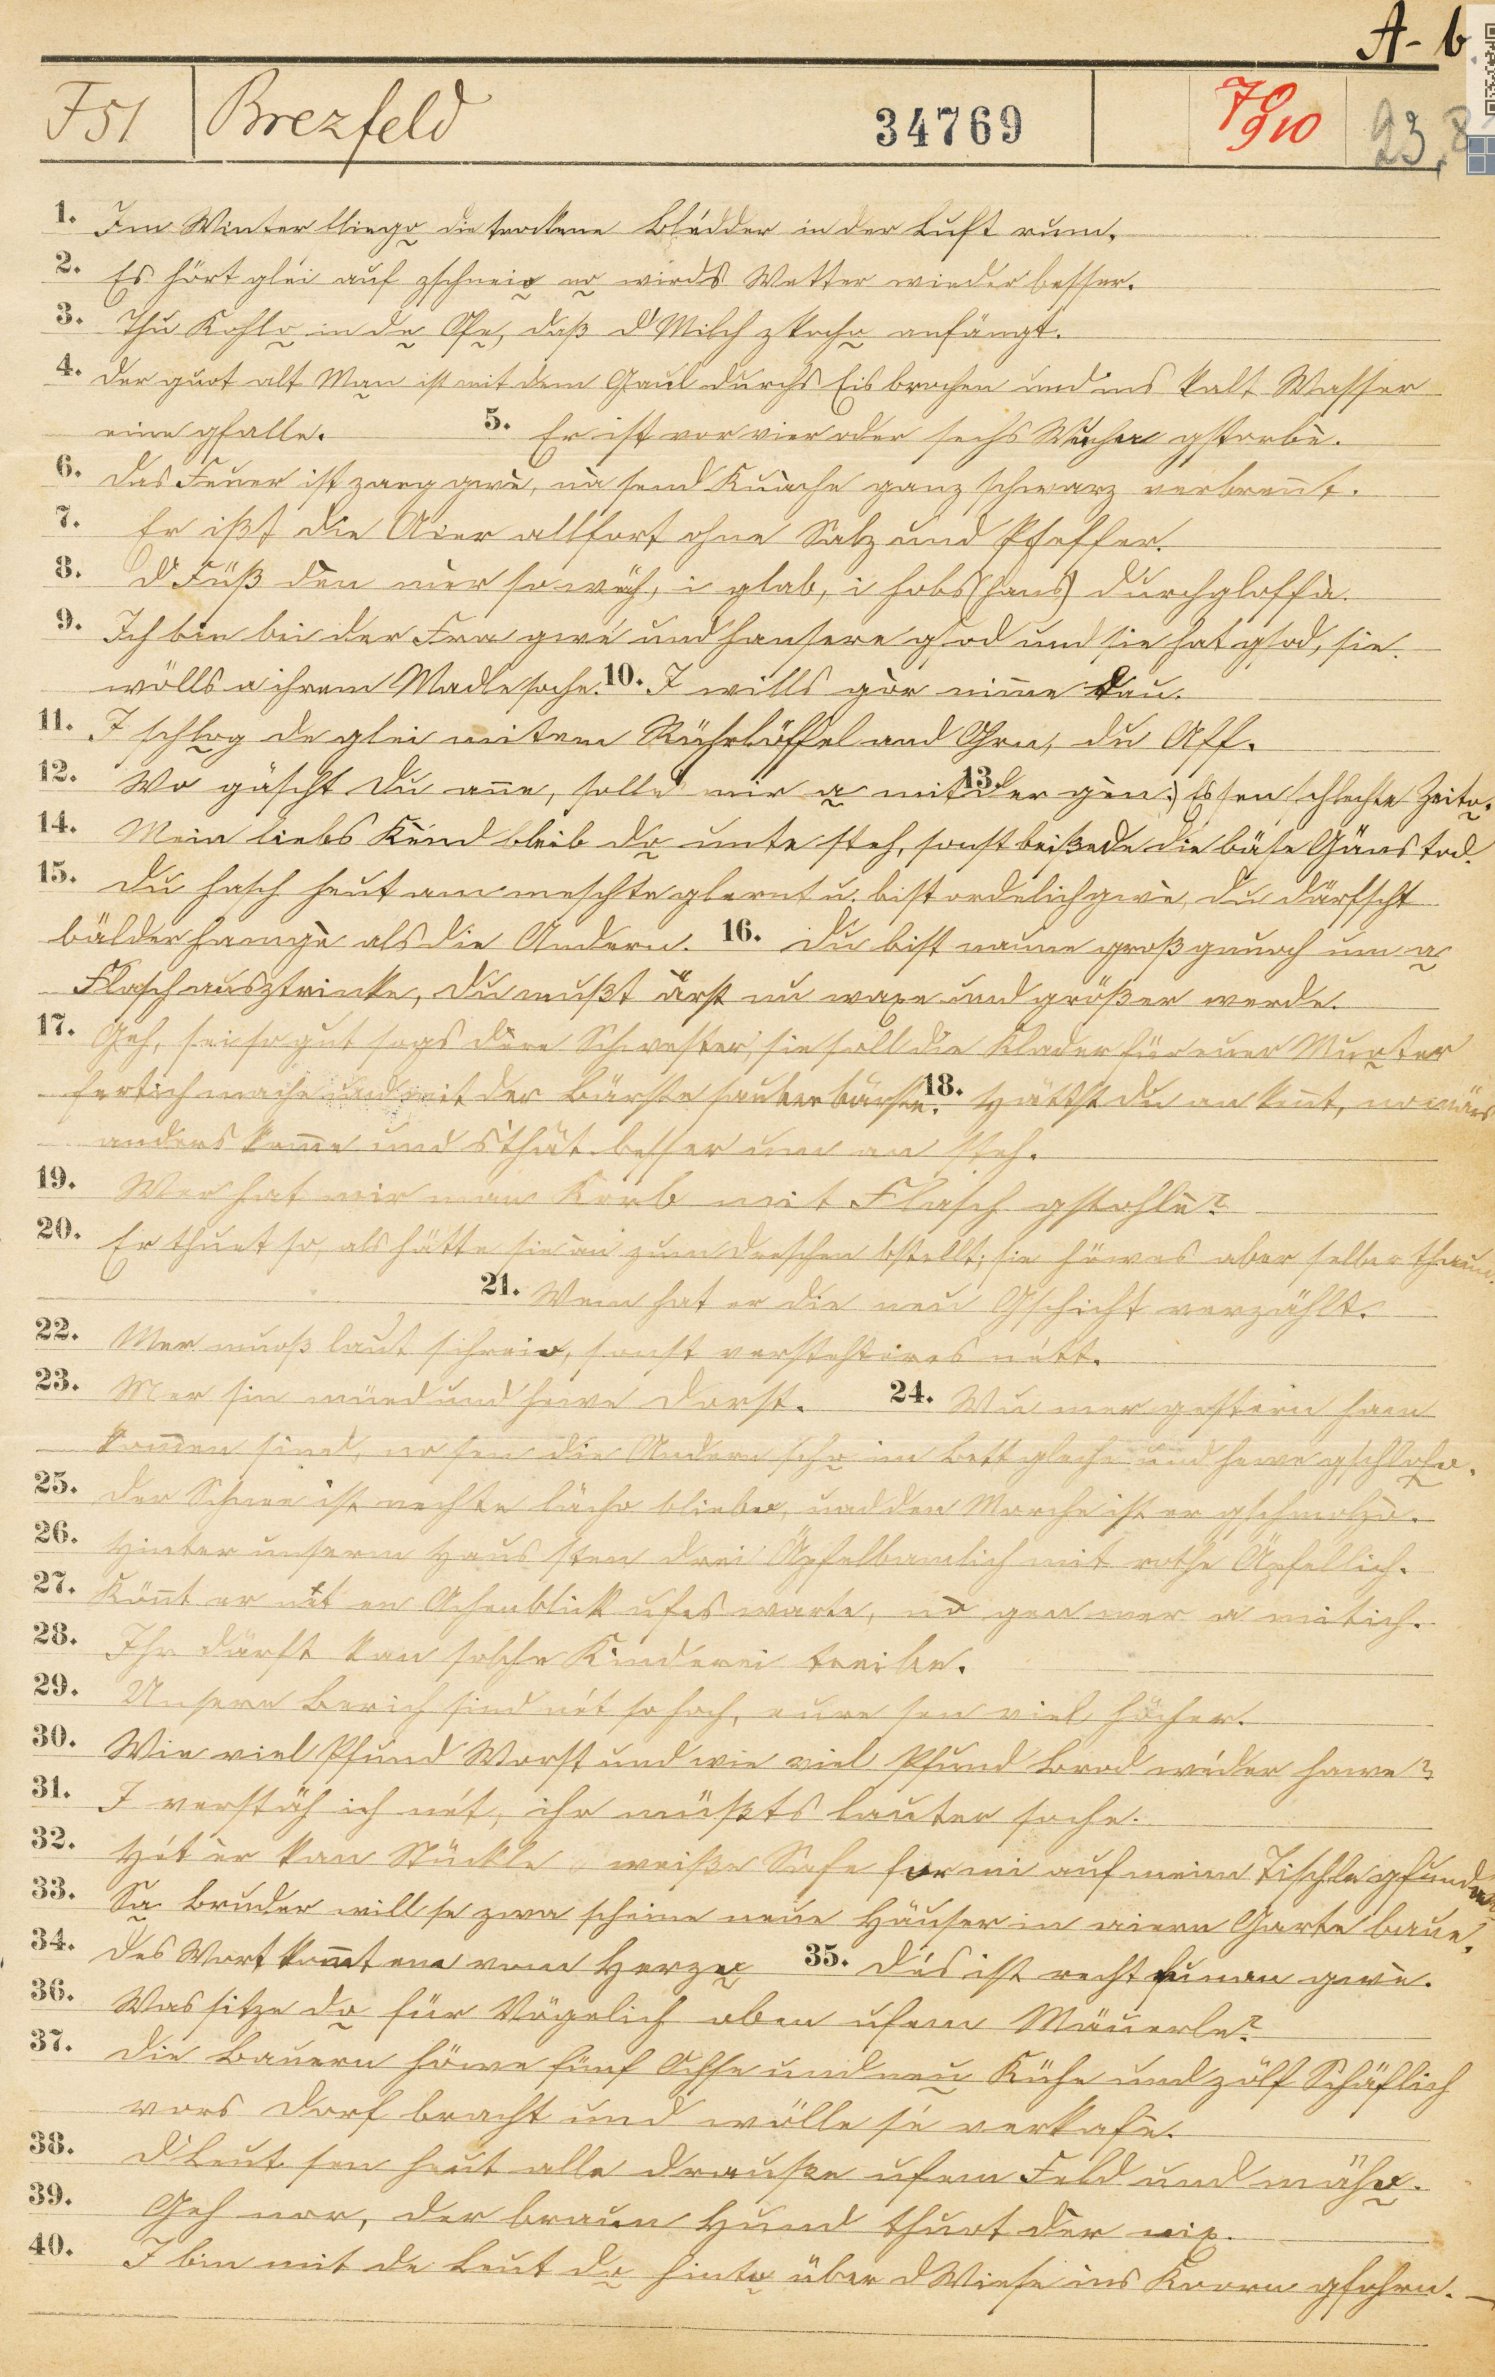 A-b
F51 Brezfeld 34769 70 910 23,8
1. Im Winter fliego die trockene Blédder in der Luft rum.
2. Es hört gléi auf zschneio no wirds Wetter wieder besser.
3. Thu Kohlo in de Ofe, daß d'Milch zkocho anfängt.
4. Der guot alt Man ist mit dem Gaul durchs Eis brochen und ins kalt Wasser
eine gfalle. 5. Er ist vor vier oder sechs Wucha gstorbè.
6. Das Feuer ist zarg gwè, na send Kuache ganz schwarz verbrennt.
7. Er ißt die Aier allfort ohne Salz und Pfeffer.
8. D'Füß dèn mèr so wäh, i glab, i hobs (hans) durchgloffà.
9. Ich bin bei der Fraa gwé und hansere gsod und sie hat gsod, sie
wölls a ihrem Madle soche. 10. I wills gòr nimme dau.
11. I schlog de glei mitem Rührlöffel and Ohrn, du Aff.
12. Wo gäscht du anne, solle mir a mit der gèn. 13. Es sen schlechte Zeito.
14. Mein liebs Kènd bleib do unte steh, sonst beißede die bäse Gäns tod.
15. Du hasch heut am meschte glernt u. bist ordelich gwè, du därfscht
bälder hamgè als die Andern. 16. Du bist naume groß gnuoch um a
Flasch ausztrinke, du mußt ärst nu waxe und größer werde.
17. Geh, sei so gut sags dère Schwester, sie soll die Klader für euer Muoter
fertich mache und mit der Bürste sauber bürste. 18. Hättst du an kennt, no wärs
anders komme und s'thät besser um an steh.
19. Wer hat mir man Korb mit Flasch gstohlè?
20. Er thuet so, als hätte sie àn zum dreschen bstellt; sie höwes aber selber thaun.
21. Wem hat er die neu Gschicht verzählt.
22. Mer muoß laut schreio, sonst verstehter es nétt.
23. Mer sin müed und hewe Dorst. 24. Wu mer gestern ham
kommen sind, no sen die Andern scho im Bett gleche und hewe gschlofe.
25. Der Schnee ist nechte lächo bliebe, und den Morche ist er gschmolzà.
26. Hinter unserm Haus sten drei Äpfelbamlich mit rothe Äpfellich.
27. Könnt er nèt en Achenblick ufes warte, no gen mer a mitich.
28. Ihr därft kan solche Kinderei treibe.
29. Unsere Berich sind nét so hoch, eure sen viel höcher.
30. Wie viel Pfund Worst und wie viel Pfund Brod wéder hawe?
31. I verstäh ich nét, ihr müßts lauter soche.
32. Hèt èr kan Stückle weiße Safe for mi auf meim Tischle gfunde.
33. Sa Bruder will se zwa scheine neue Häuser in aiern Garte baue.
34. Des Wort kommt em vom Herze 35. Dés ist recht gwè.
36. Was sitze do für Vögelich oben ufem Mäuerle?
37. Die Bauern höwe fünf Ochse und neu Kühe und zölf Schäflich
vors Dorf bracht und wölle sé verkafè.
38. D'Leut sen heut alle drauße ufem Feld und mäho.
39. Geh nor, der braun Hund thuot dèr nix.
40. I bin mit de Leut do hinto über d'Wiese ins Koorn gfohrn. —